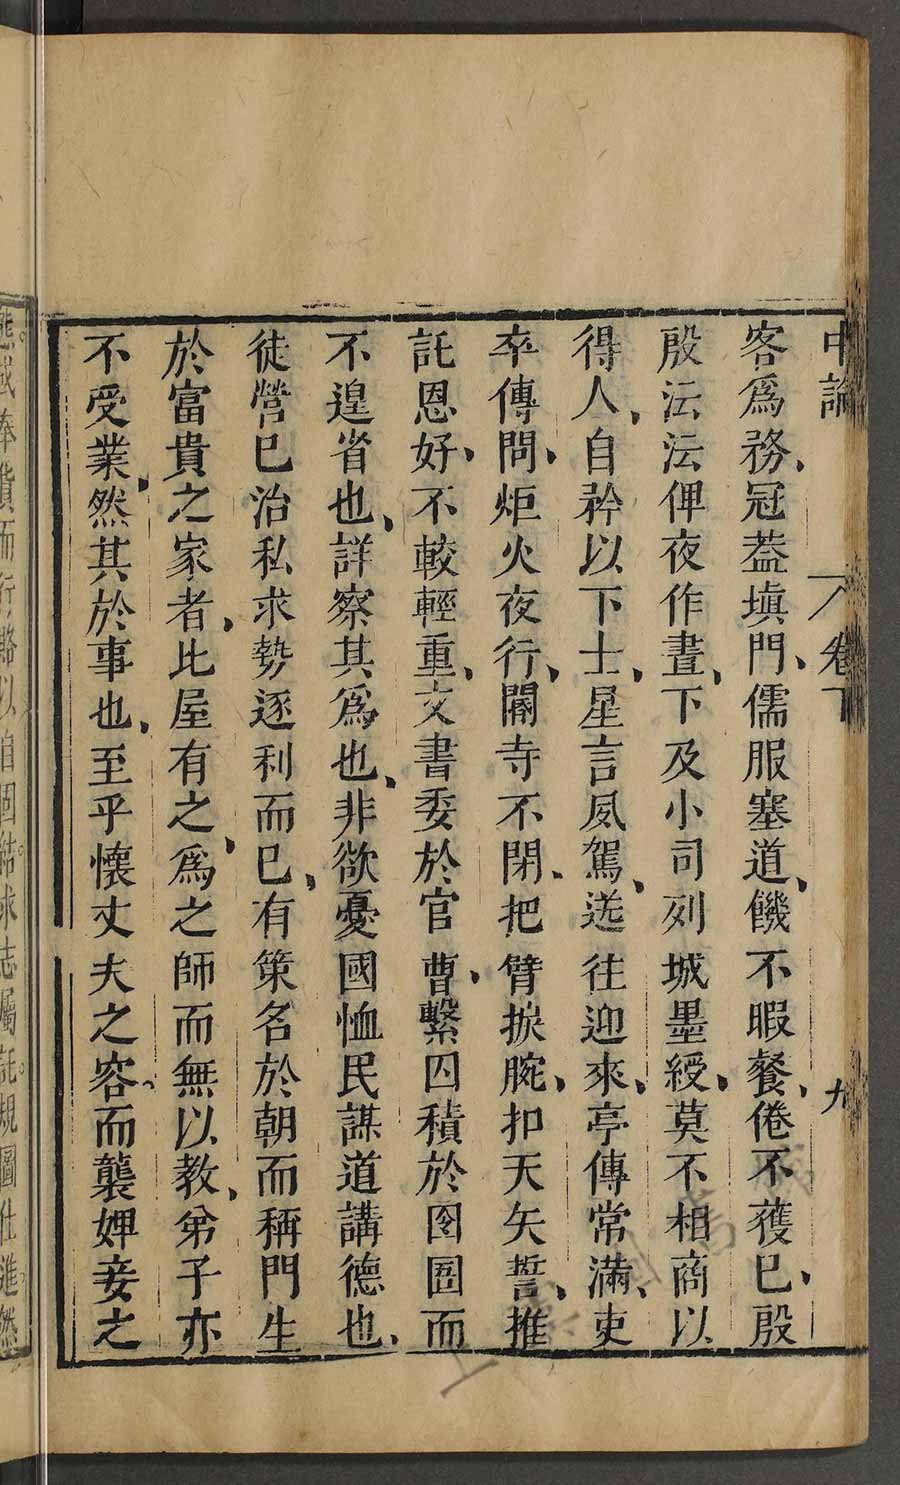 中論 卷下 九
客爲務、冠葢塡門、儒服塞道、饑不暇餐、倦不獲已、殷
殷沄沄俾夜作晝、下及小司列城墨綬、莫不相商以
得人、自矜以下士、星言夙駕、送往迎來、亭傳常滿、吏
卒傳問、炬火夜行、閽寺不閉、把臂捩腕、扣天矢誓、推
託恩好、不較輕重、文書委於官曹、繫囚積於囹圄而
不遑省也、詳察其爲也、非欲憂國恤民謀道講德也、
徒營巳治私求勢逐利而已、有策名於朝而稱門生
於富貴之家者、比屋有之、爲之師而無以教、弟子亦
不受業、然其於事也、至乎懷丈夫之容、而襲婢妾之
態或奉貨而行賂以自固結求志屬託規圖仕進然